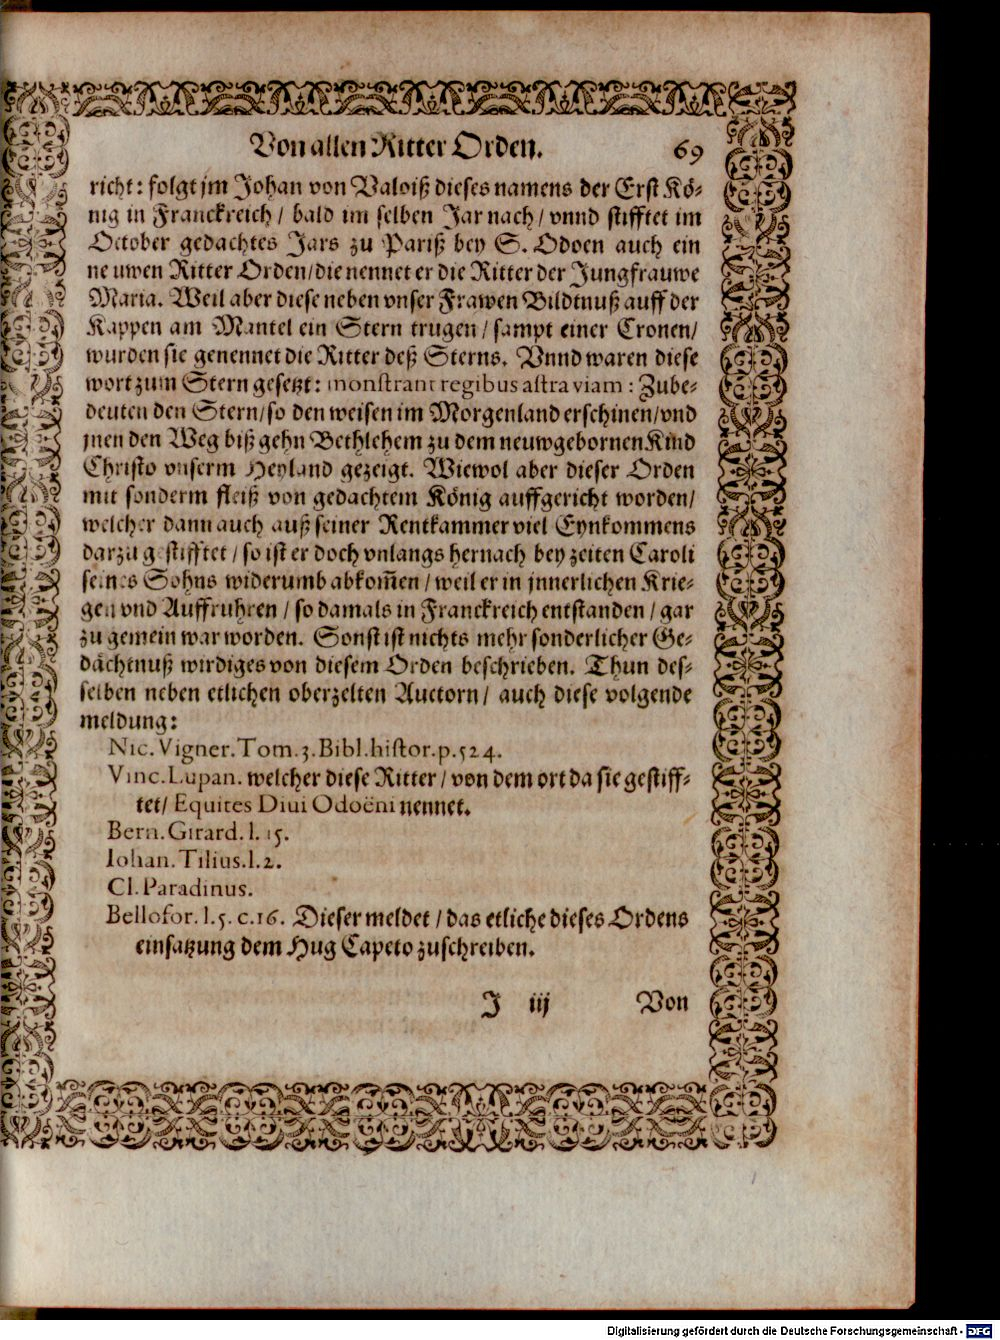 Von allen Ritter Orden. 69
richt: folgt jm Johan von Valoiß dieses namens der Erst Kö-
nig in Franckreich / bald im selben Jar nach / vnnd stifftet im
October gedachtes Jars zu Pariß bey S. Odoen auch ein
neuwen Ritter Orden / die nennet er die Ritter der Jungfrauwe
Maria. Weil aber diese neben vnser Frawen Bildtnuß auff der
Kappen am Mantel ein Stern trugen / sampt einer Cronen /
wurden sie genennet die Ritter deß Sterns. Vnnd waren diese
wort zum Stern gesetzt: monstrant regibus astra viam: Zube-
deuten den Stern / so den weisen im Morgenland erschinen / vnd
jnen den Weg biß gehn Bethlehem zu dem neuwgebornen Kind
Christo vnserm Heyland gezeigt. Wiewol aber dieser Orden
mit sonderm fleiß von gedachtem König auffgericht worden /
welcher dann auch auß seiner Rentkammer viel Eynkommens
darzu gestifftet / so ist er doch vnlangs hernach bey zeiten Caroli
seines Sohns widerumb abkom̃en / weil er in jnnerlichen Krie-
gen vnd Auffruhren / so damals in Franckreich entstanden / gar
zu gemein war worden. Sonst ist nichts mehr sonderlicher Ge-
dächtnuß wirdiges von diesem Orden beschrieben. Thun des-
selben neben etlichen oberzelten Auctorn / auch diese volgende
meldung:
Nic. Vigner. Tom. 3. Bibl. histor. p. 524.
Vinc. Lupan. welcher diese Ritter / von dem ort da sie gestiff-
tet / Equites Diui Odoëni nennet.
Bern. Girard. l. 15.
Iohan. Tilius. l. 2.
Cl. Paradinus.
Bellofor. l. 5. c. 16. Dieser meldet / das etliche dieses Ordens
einsatzung dem Hug Capeto zuschreiben.
J iij Von
Digitalisierung gefördert durch die Deutsche Forschungsgemeinschaft - DFG